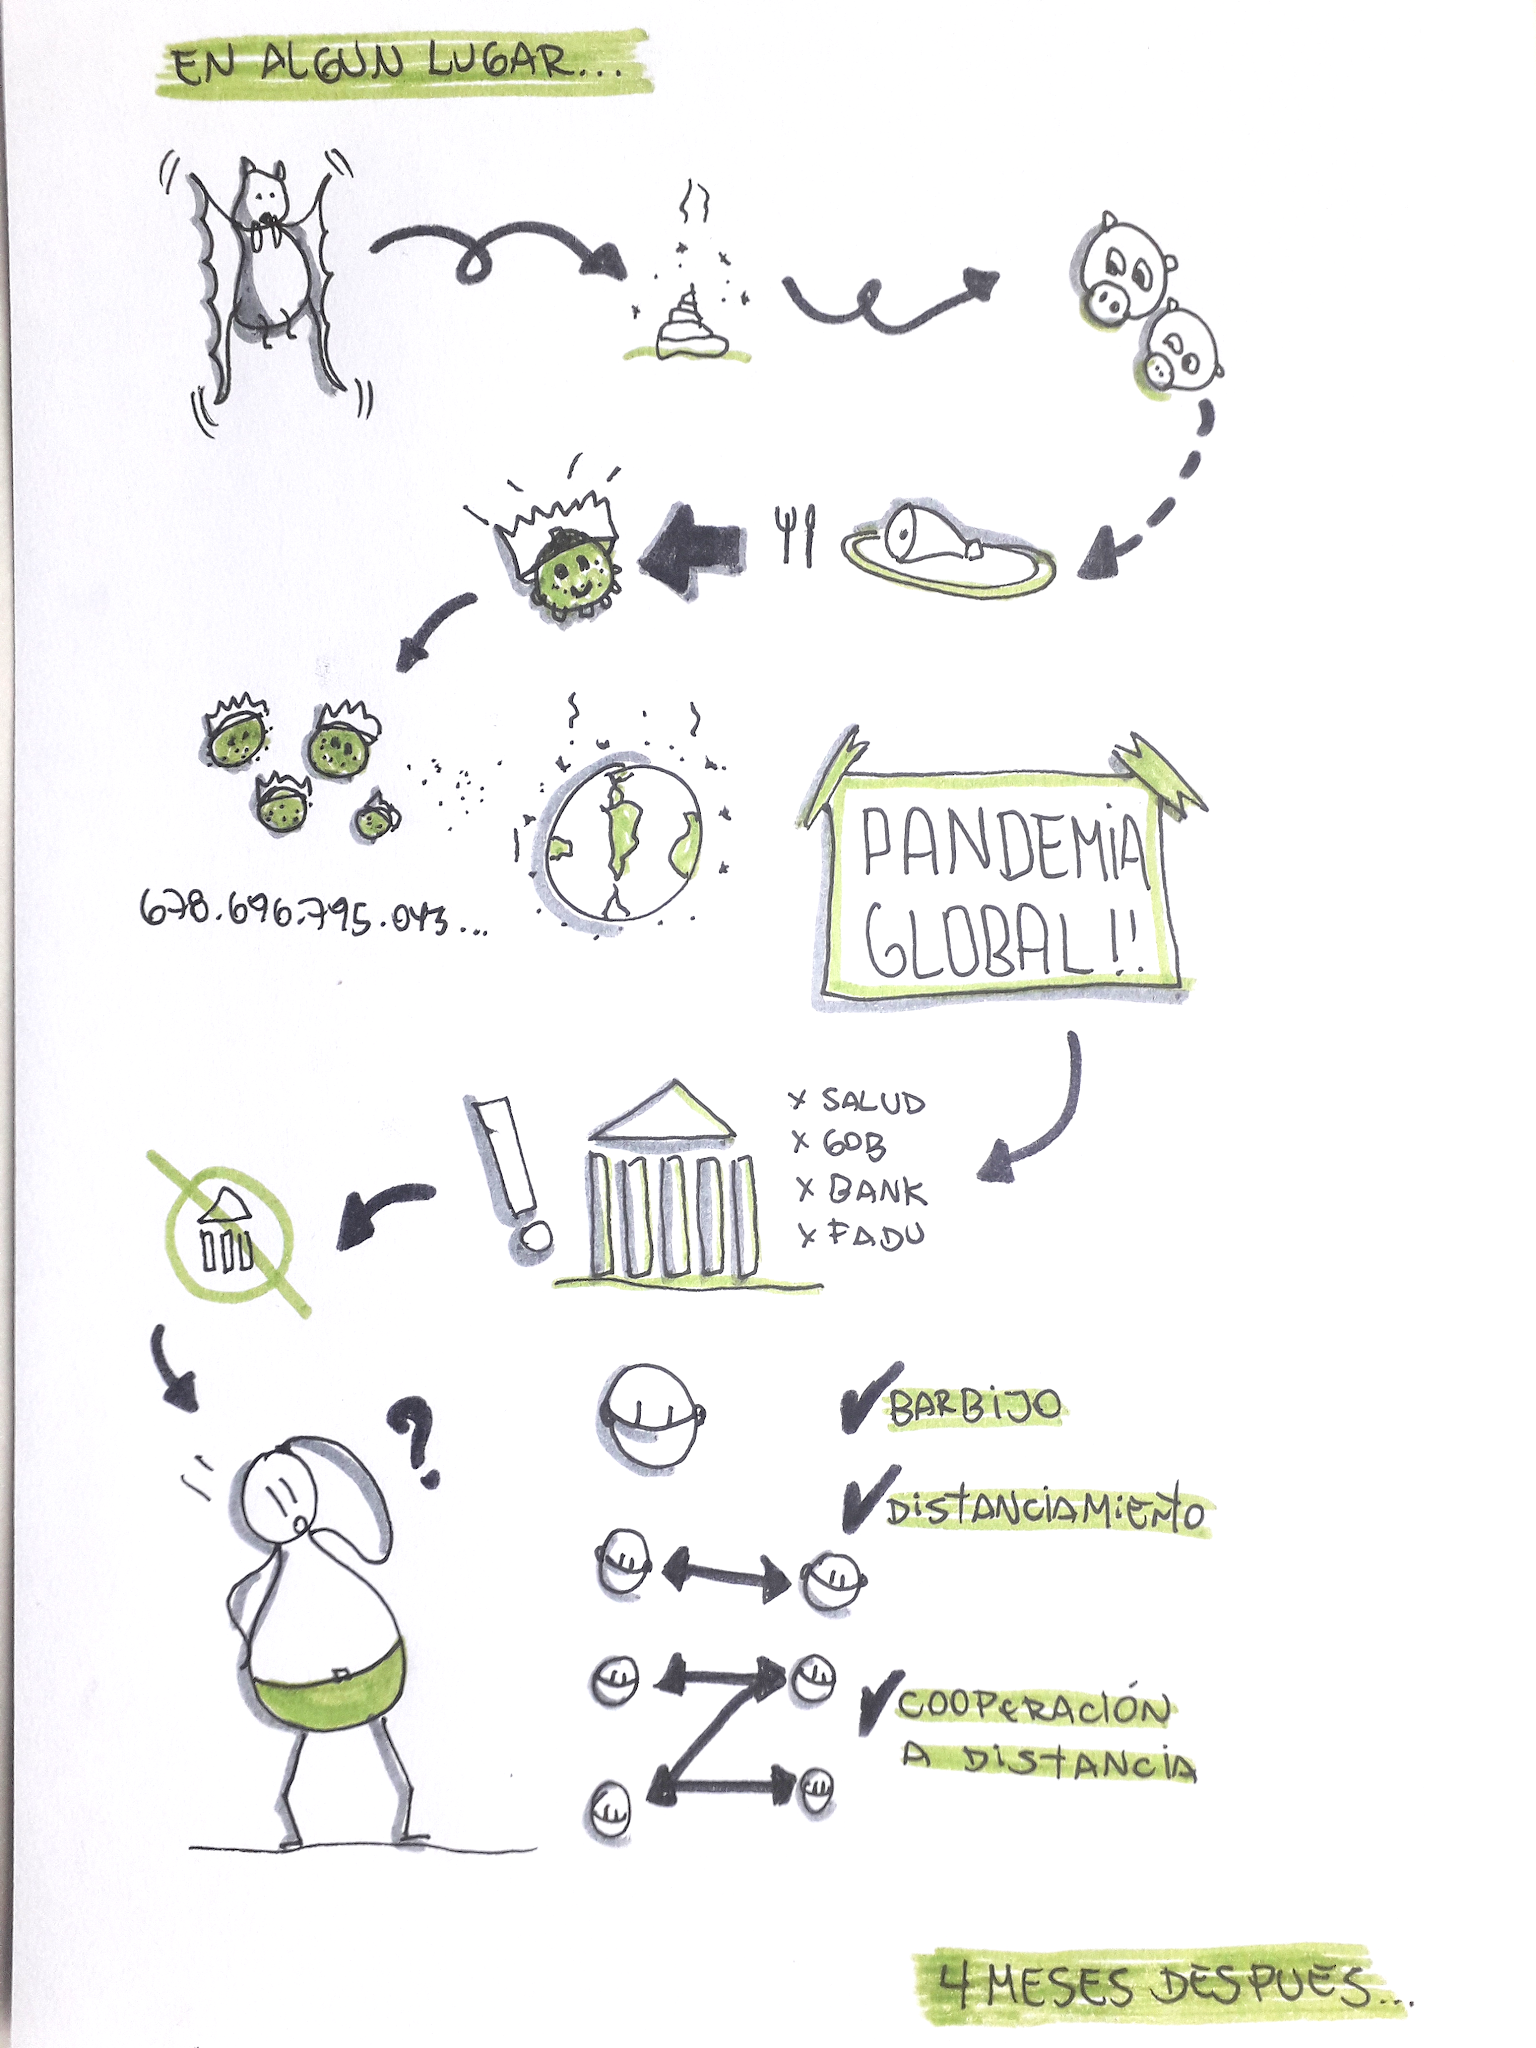 EN ALGUN LUGAR...
678.696.795.043...
PANDEMiA
GLOBAL!!
x SALUD
x GOB
x BANK
x FADU
?
✔ BARBiJO
✔ DiSTANCiAMiENTO
✔ COOPERACIÓN
A DiSTANCiA
4 MESES DESPUES...